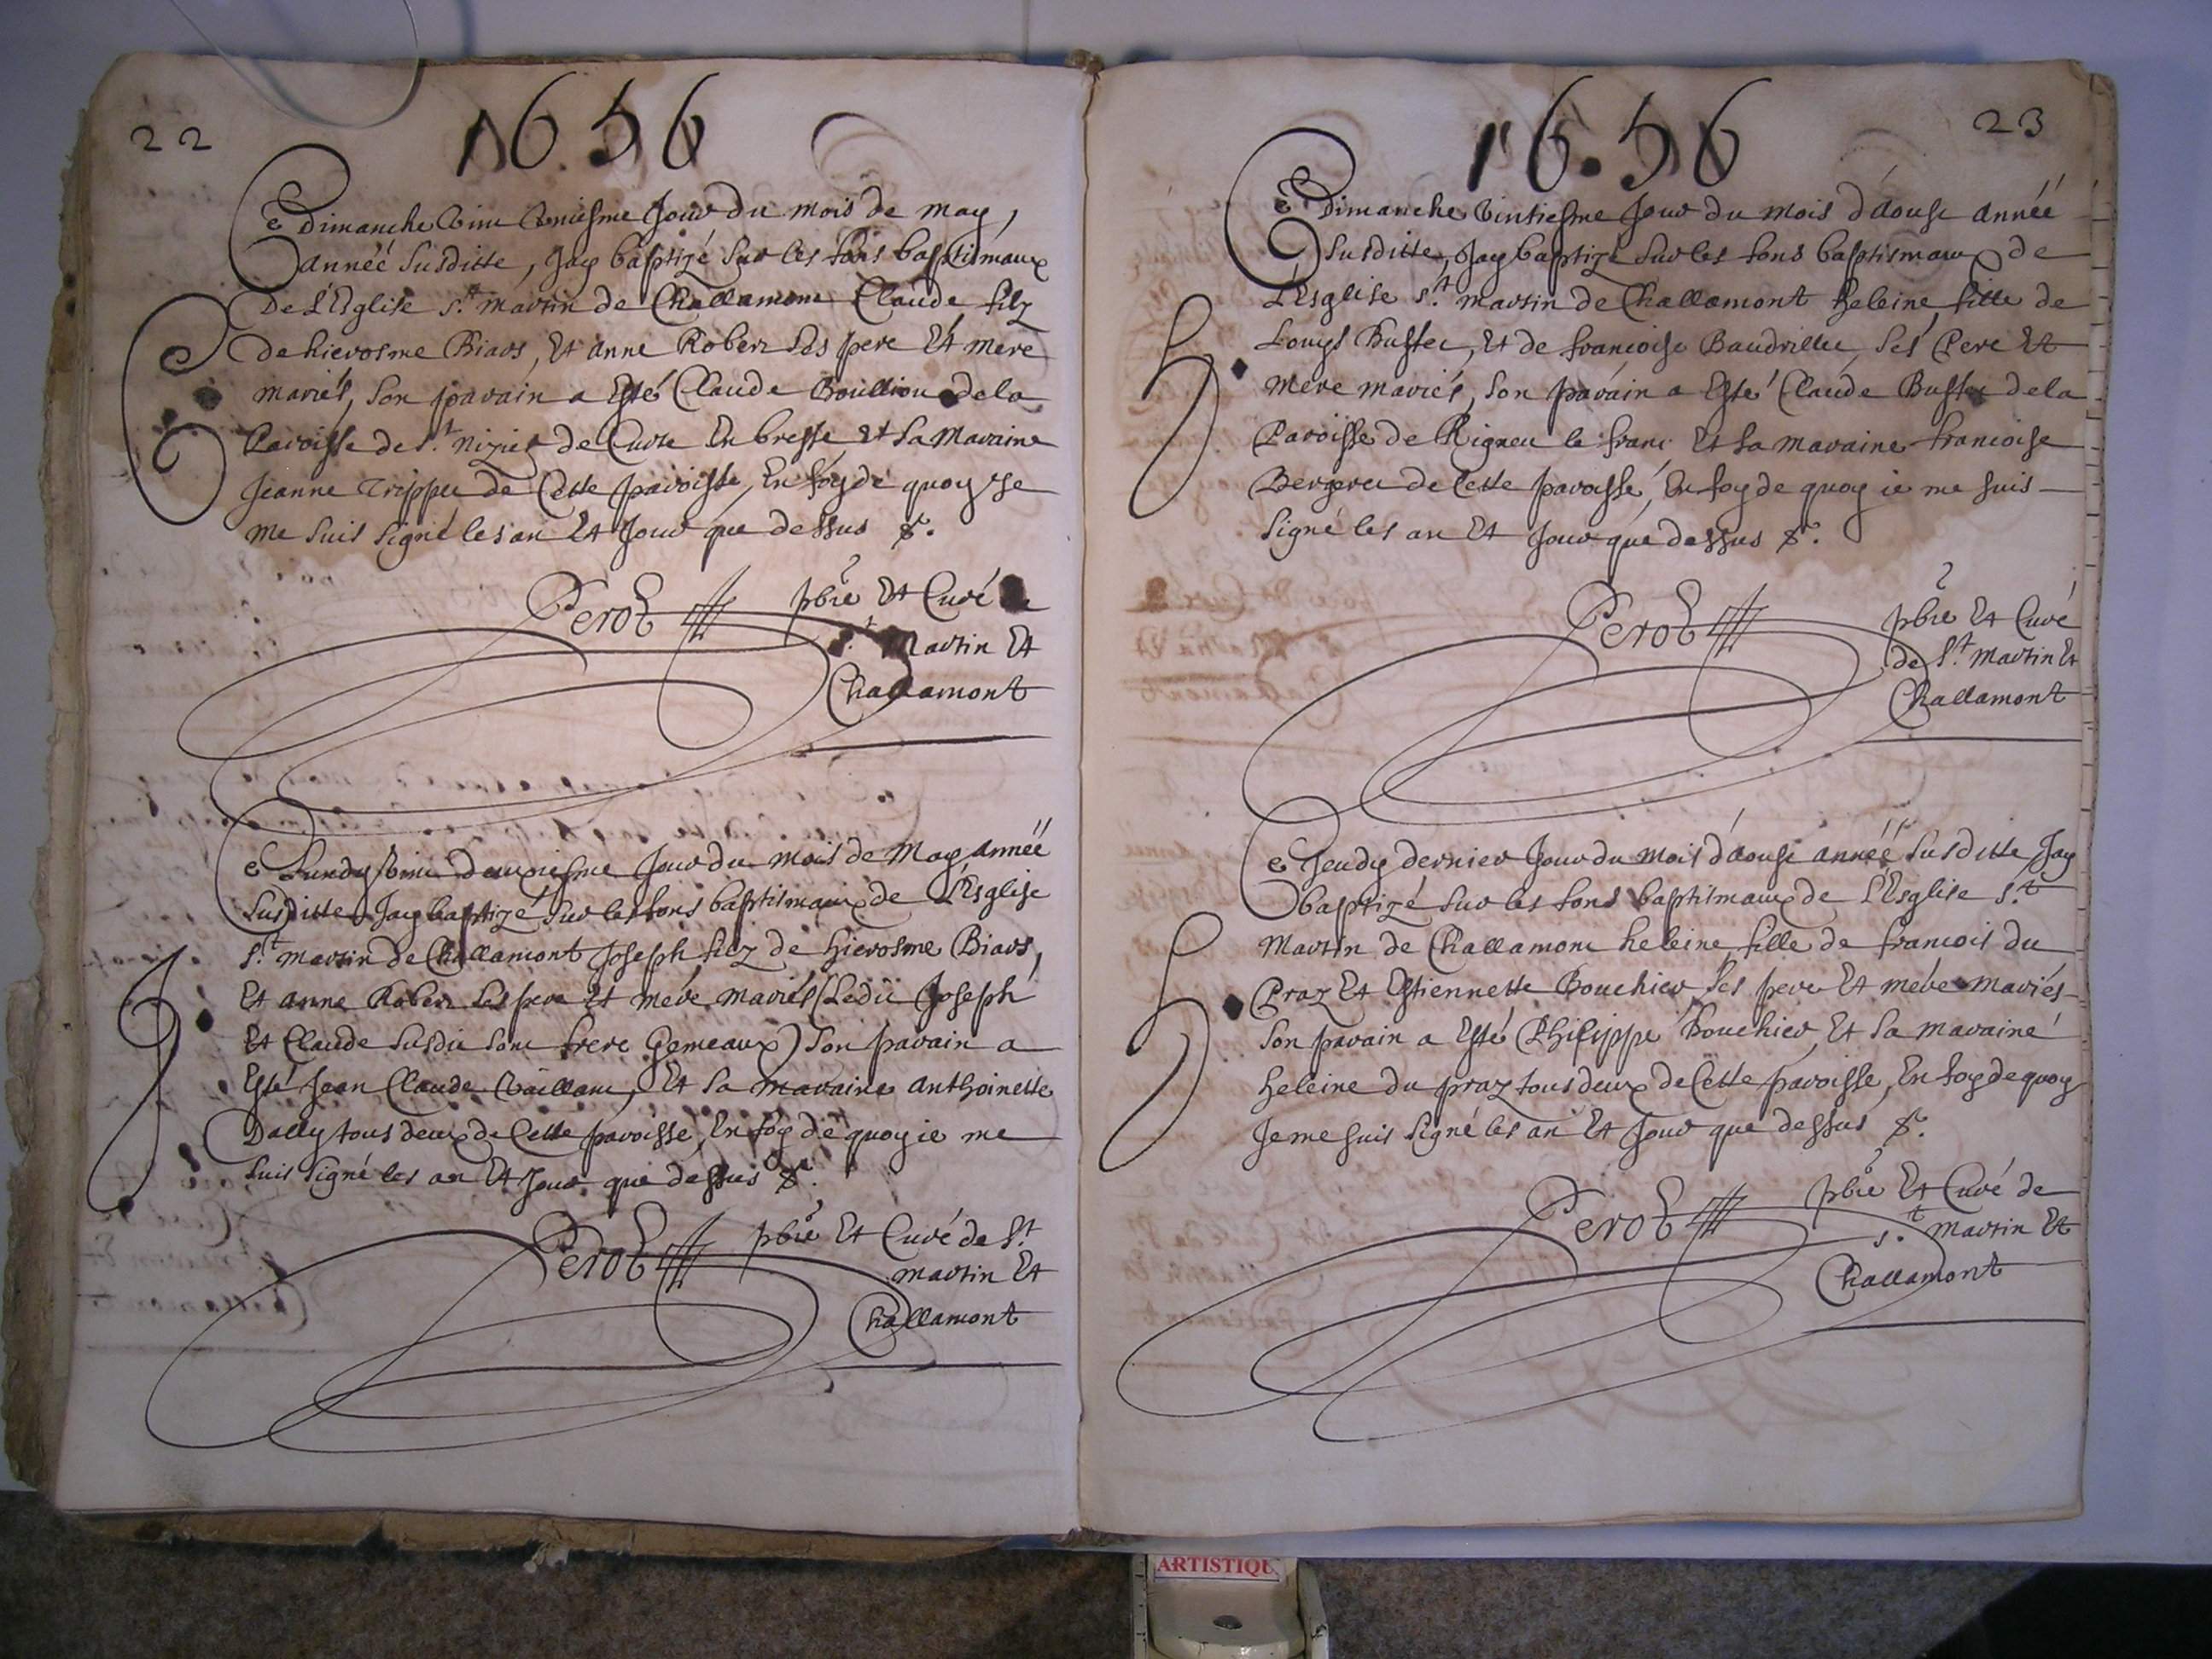 22
1656
Ce Dimanche vint uniesme Jour du mois de may,
annéé susditte, Jay baptizé sur les fons baptismaux
De L'Esglise St. martin de Challamont Claude filz
de hierosme Biars, Et anne Robert ses pere Et mere
mariés, son parain a Esté Claude Bouillion dela
Paroisse de St. nizier de Curte En bresse, Et sa Maraine
Jeanne Trippet de Cette paroisse, En foy de quoy Je
me suis signé les an Et Jour que dessus &.
C
Perot pbre Et Curé de
St. Martin Et
Challamont
Ce Lundy vint deuxiesme Jour du mois de May annéé
susditte Jay baptizé sur les fons baptismaux de L'Esglise
St. martin de Challamont Joseph filz de hierosme Biars,
Et anne Robert ses pere Et mere mariés (Ledit Joseph
Et Claude susdit sont frere Gemeaux) son parain a
Esté Jean Claude Vaillant, Et sa maraine anthoinette
Dally tous deux de Cette paroisse, En foy de quoy ie me
suis signé les an Et Jour que dessus &.
J
Perot pbre Et Curé de St.
martin Et
Challamont
1656
23
Ce Dimanche vintiesme Jour du mois d'aoust annéé
susditte, Jay baptizé sur les fons baptismaux de
L'Esglise St. martin de Challamont heleine fille de
Louys Buffet, Et de francoise Baudrillet, ses Pere Et
mere mariés, son parain a Esté Claude Buffet dela
Paroisse de Rigneu le franc Et sa maraine francoise
Bergeret de Cette paroisse, En foy de quoy ie me suis
signé les an Et Jour que dessus &.
H
Perot pbre Et Curé
de St. martin Et
Challamont
Ce Jeudy dernier Jour du mois d'aoust annéé susditte Jay
baptizé sur les fons baptismaux de L'Esglise St.
Martin de Challamont heleine fille de francois du
Praz Et Estiennette Bouchier ses pere Et mere mariés
son parain a Esté Philippe Bouchier, Et sa maraine
heleine du praz tous deux de Cette paroisse, En foy de quoy
Je me suis signé les an Et Jour que dessus &.
H
Perot pbre Et Curé de
St. martin Et
Challamont
ARTISTIQU